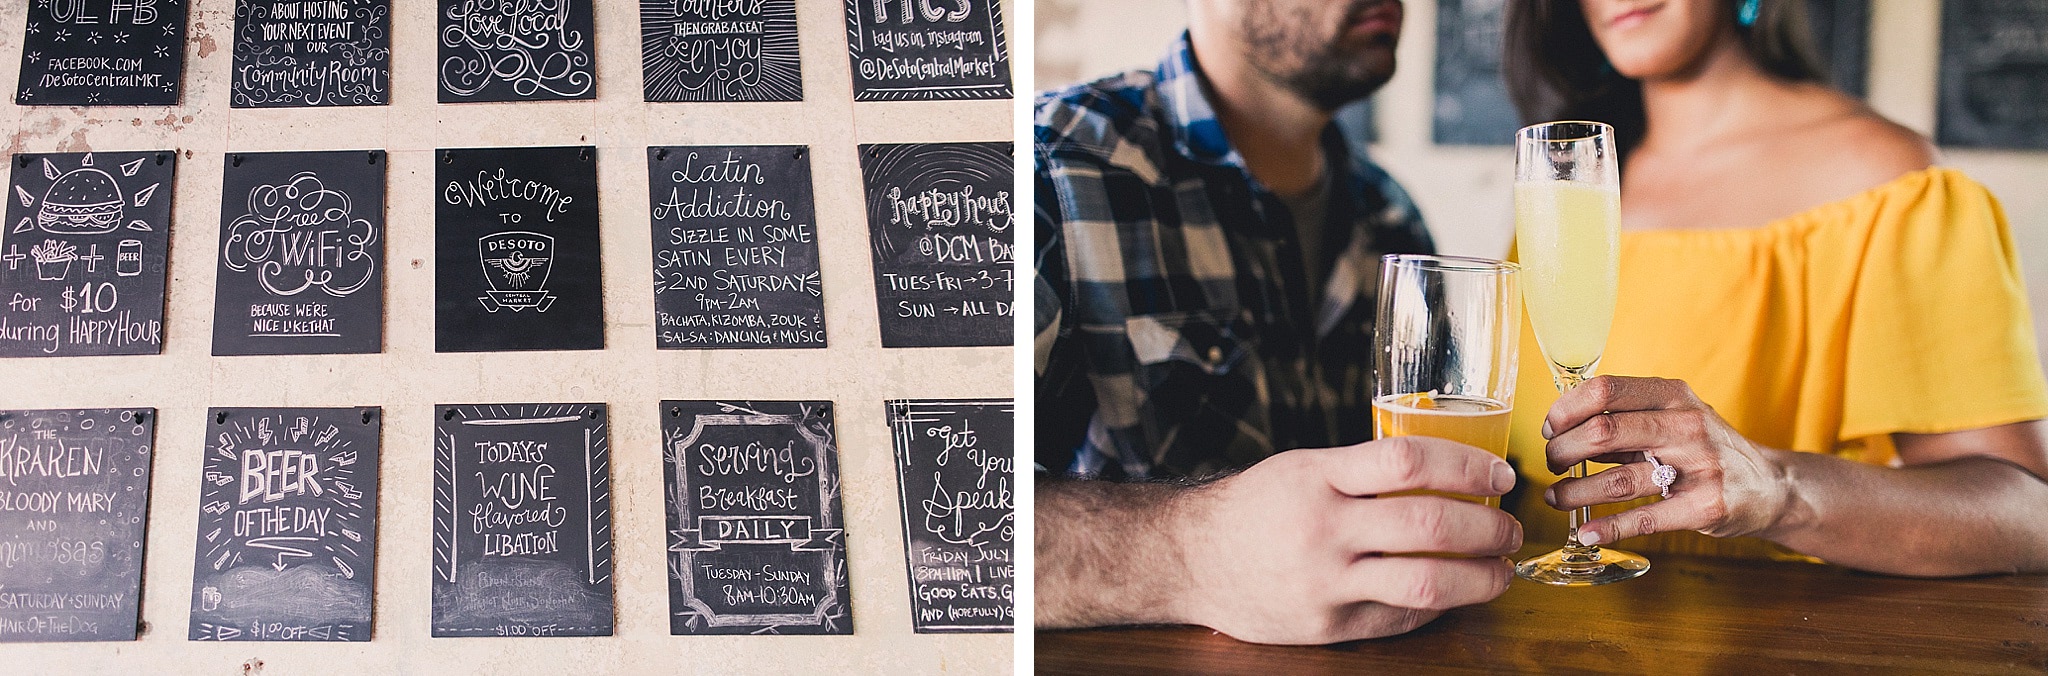 FACEBOOK.COM
/DESOTOCENTRALMKT
ABOUT HOSTING
YOUR NEXT EVENT
IN OUR
Community Room
Love Local
THEN GRAB A SEAT
& enjoy
PICS
tag us on instagram
@DeSotoCentralMarket
+ + BEER
for $10
during HAPPY HOUR
free
WiFi
BECAUSE WE'RE
NICE LIKE THAT
Welcome
TO
DESOTO
CENTRAL
MARKET
Latin
Addiction
SIZZLE IN SOME
SATIN EVERY
2ND SATURDAY
9PM-2AM
BACHATA, KIZOMBA, ZOUK &
SALSA: DANCING & MUSIC
happy hour
@DCM BA
TUES-FRI→3-7
SUN → ALL DA
THE
KRAKEN
BLOODY MARY
AND
mimosas
SATURDAY + SUNDAY
HAIR OF THE DOG
BEER
OF THE DAY
$1.00 OFF
TODAY'S
WINE
flavored
LIBATION
$1.00 OFF
Serving
Breakfast
DAILY
TUESDAY - SUNDAY
8AM-10:30AM
Get
Your
Speak
FRIDAY JULY
8PM-11PM | LIVE
GOOD EATS, G
AND (HOPEFULLY) G